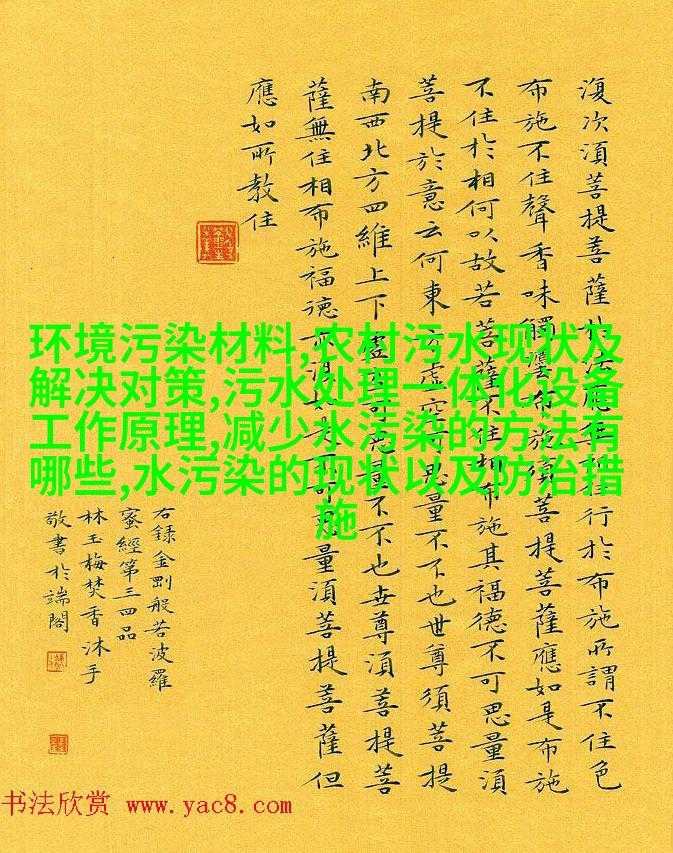 復次湏菩提菩薩於法應住行於布施所謂不住色
布施不住聲香味觸布施須菩提菩薩應如是布施
不住於相何以故若菩薩不住相布施其福德不可思量湏
菩提於意云何東方虛空可思量不不也世尊須菩提
南西北方四維上下虛空可思量不不也世尊湏菩提菩
薩無住相布施福德亦不可思量湏菩提菩薩但
應如所教住
右録金剛般若波羅
蜜經第三四品
林玉梅焚香沐手
敬書於端閣
环境污染材料,农村污水现状及
解决对策,污水处理一体化设备
工作原理,减少水污染的方法有
哪些,水污染的现状以及防治措
施
书法欣赏 www.yac8.com